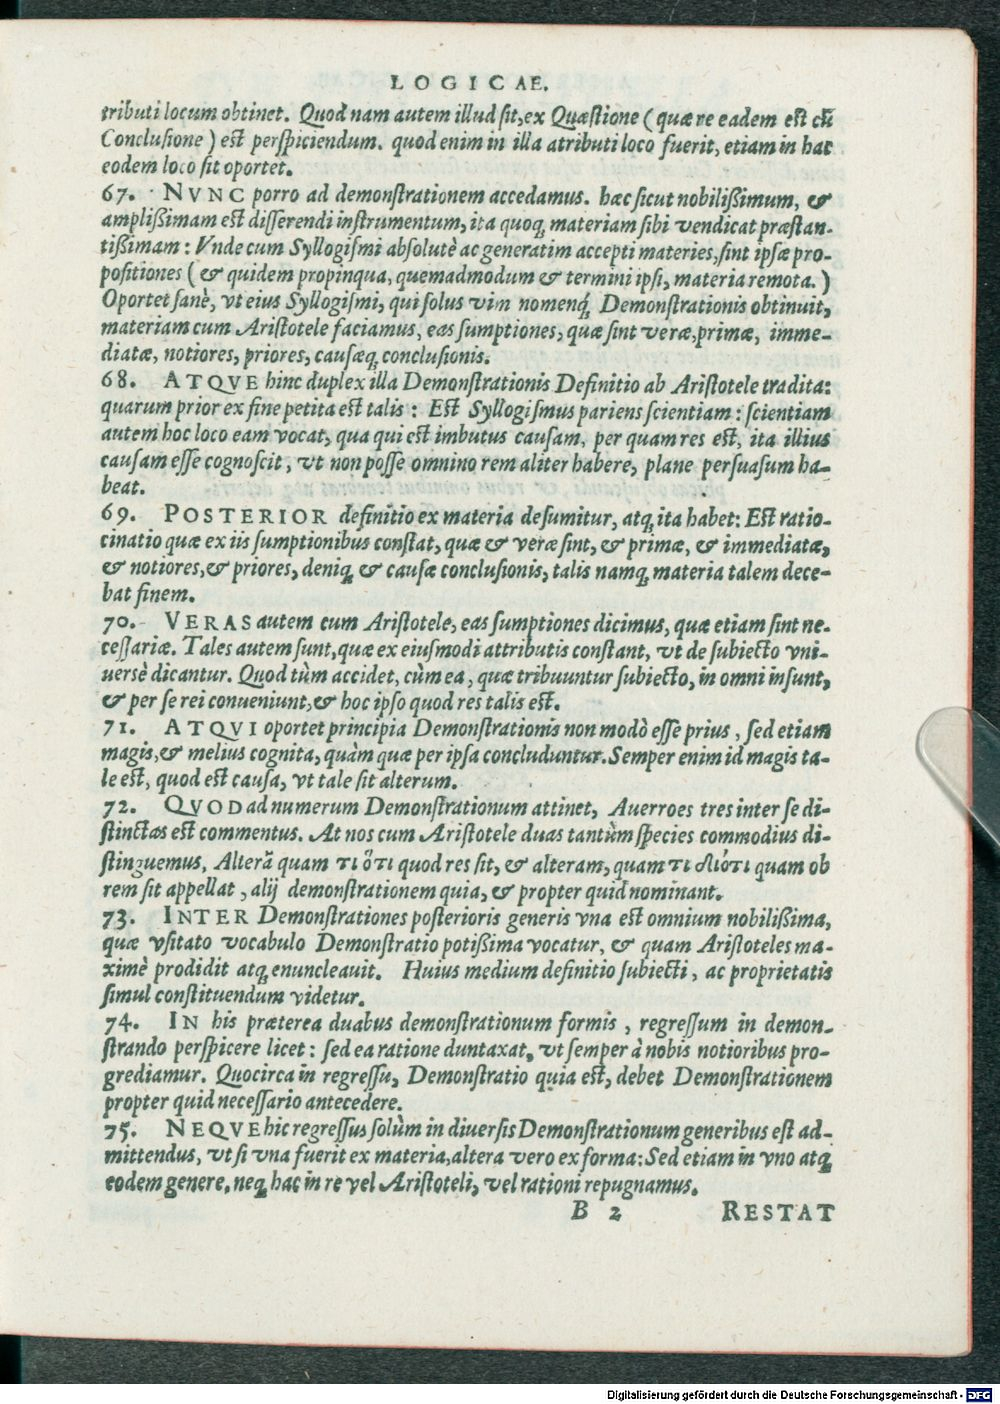 LOGICAE.
tributi locum obtinet. Quod nam autem illud ſit, ex Quæſtione (quæ re eadem eſt cũ
Concluſione) eſt perſpiciendum. quod enim in illa atributi loco fuerit, etiam in hac
eodem loco ſit oportet.
67. NVNC porro ad demonſtrationem accedamus. hæc ſicut nobilißimum, &
amplißimam eſt diſſerendi inſtrumentum, ita quoq; materiam ſibi vendicat præſtan-
tißimam: Vnde cum Syllogiſmi abſolutè ac generatim accepti materies, ſint ipſæ pro-
poſitiones (& quidem propinqua, quemadmodum & termini ipſi, materia remota.)
Oportet ſanè, vt eius Syllogiſmi, qui ſolus vim nomenq; Demonſtrationis obtinuit,
materiam cum Ariſtotele faciamus, eas ſumptiones, quæ ſint veræ, primæ, imme-
diatæ, notiores, priores, cauſæq; concluſionis.
68. ATQVE hinc duplex illa Demonſtrationis Definitio ab Ariſtotele tradita:
quarum prior ex fine petita eſt talis: Eſt Syllogiſmus pariens ſcientiam: ſcientiam
autem hoc loco eam vocat, qua qui eſt imbutus cauſam, per quam res eſt, ita illius
cauſam eſſe cognoſcit, vt non poſſe omnino rem aliter habere, plane perſuaſum ha-
beat.
69. POSTERIOR definitio ex materia deſumitur, atq; ita habet: Eſt ratio-
cinatio quæ ex iis ſumptionibus conſtat, quæ & veræ ſint, & primæ, & immediatæ,
& notiores, & priores, deniq; & cauſæ concluſionis, talis namq; materia talem dece-
bat finem.
70. VERAS autem cum Ariſtotele, eas ſumptiones dicimus, quæ etiam ſint ne-
ceſſariæ. Tales autem ſunt, quæ ex eiuſmodi attributis conſtant, vt de ſubiecto vni-
uersè dicantur. Quod tùm accidet, cùm ea, quæ tribuuntur ſubiecto, in omni inſunt,
& per ſe rei conueniunt, & hoc ipſo quod res talis eſt.
71. ATQVI oportet principia Demonſtrationis non modò eſſe prius, ſed etiam
magis, & melius cognita, quàm quæ per ipſa concluduntur. Semper enim id magis ta-
le eſt, quod eſt cauſa, vt tale ſit alterum.
72. QVOD ad numerum Demonſtrationum attinet, Auerroes tres inter ſe di-
ſtinctas eſt commentus. At nos cum Ariſtotele duas tantùm ſpecies commodius di-
ſtinguemus, Alterã quam τι ὅτι quod res ſit, & alteram, quam τι διότι quam ob
rem ſit appellat, alij demonſtrationem quia, & propter quid nominant.
73. INTER Demonſtrationes poſterioris generis vna eſt omnium nobilißima,
quæ vſitato vocabulo Demonſtratio potißima vocatur, & quam Ariſtoteles ma-
ximè prodidit atq; enuncleauit. Huius medium definitio ſubiecti, ac proprietatis
ſimul conſtituendum videtur.
74. IN his præterea duabus demonſtrationum formis, regreſſum in demon-
ſtrando perſpicere licet: ſed ea ratione duntaxat, vt ſemper à nobis notioribus pro-
grediamur. Quocirca in regreſſu, Demonſtratio quia eſt, debet Demonſtrationem
propter quid neceſſario antecedere.
75. NEQVE hic regreſſus ſolùm in diuerſis Demonſtrationum generibus eſt ad-
mittendus, vt ſi vna fuerit ex materia, altera vero ex forma: Sed etiam in vno atq;
eodem genere, neq; hac in re vel Ariſtoteli, vel rationi repugnamus.
B 2 RESTAT
Digitalisierung gefördert durch die Deutsche Forschungsgemeinschaft - DFG